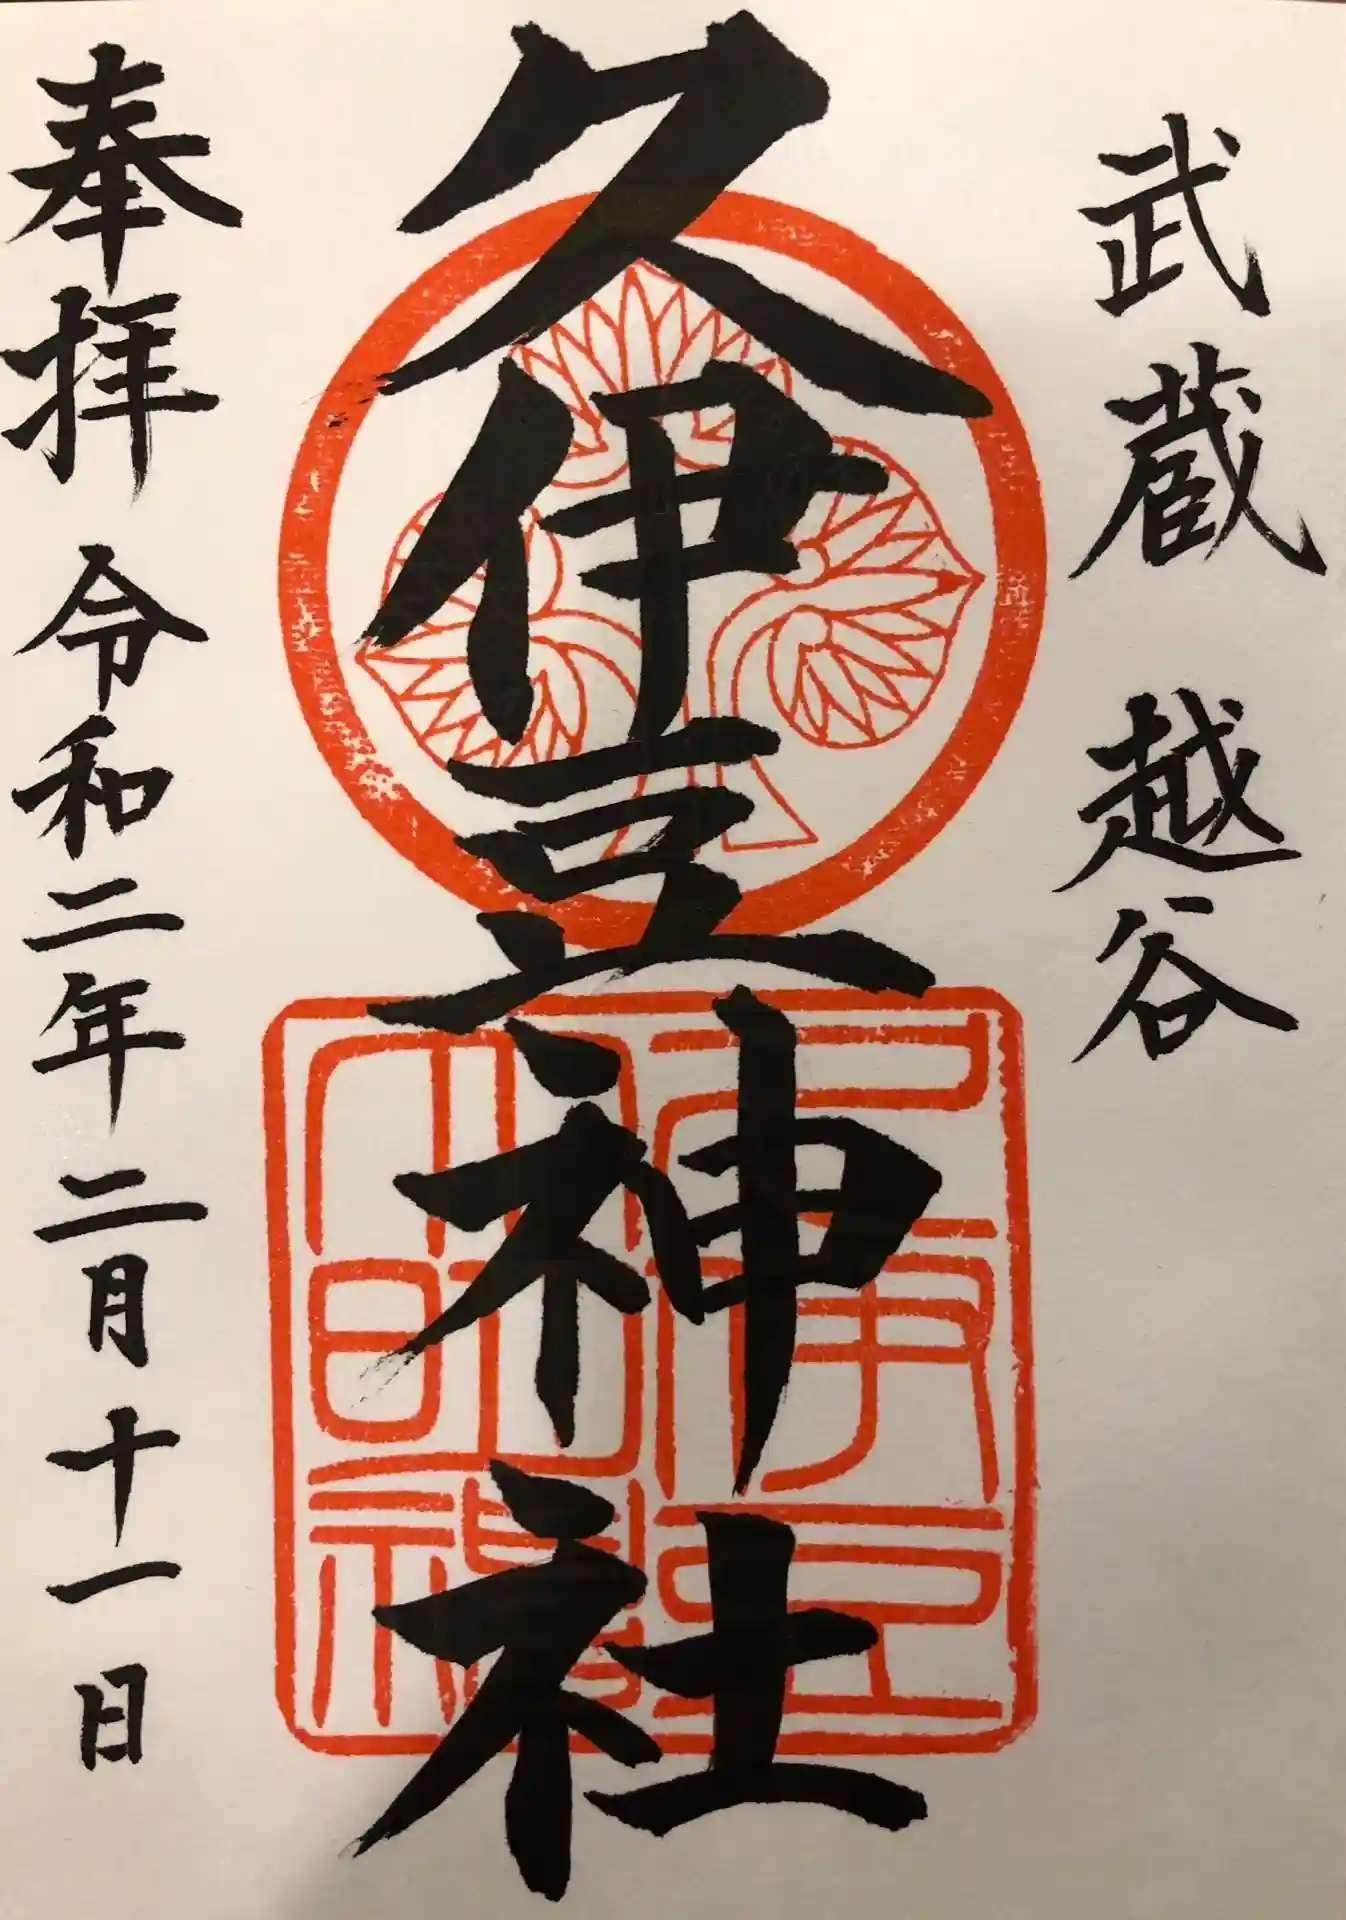 武蔵 越谷
久伊豆神社
奉拝 令和二年 二月十一日